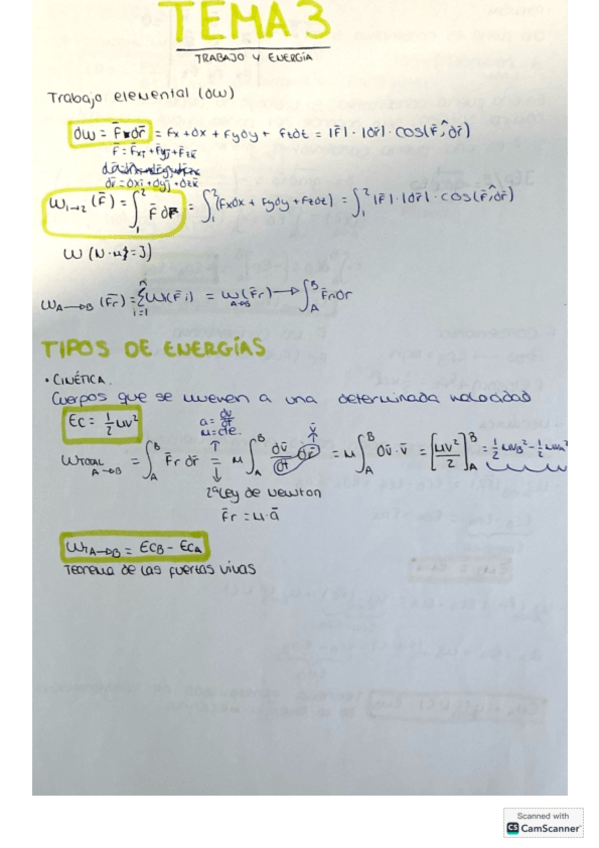 TEMA 3
TRABAJO Y ENERGÍA
Trabajo elemental (dW)
dW = F̄ · dr̄ = Fx · dx + Fydy + Fzdz = |F̄| · |dr̄| · cos(F̄,^dr̄)
F̄ = F̄xi + F̄yj + F̄zk
dr̄ = dxi + dyj + dzk
W1→2 (F̄) = ∫₁² F̄ dr̄ = ∫₁² (Fxdx + Fydy + Fzdz) = ∫₁² |F̄| · |dr̄| · cos(F̄,^dr̄)
W (N·m = J)
WA→B (F̄r) = Σ W(F̄i) = W(F̄r) → ∫ₐᴮ F̄r dr
n
i=1
A→B
TIPOS DE ENERGÍAS
• CINÉTICA.
Cuerpos que se mueven a una determinada velocidad
Ec = ½ mv²
a = dv/dt
m = cte.
v̄
WTOTAL A→B = ∫ₐᴮ F̄r dr̄ = m ∫ₐᴮ dv̄/dt dr̄ = m ∫ₐᴮ dv̄ · v̄ = [mv²/2]ₐᴮ = ½ mvB² - ½ mvA²
2ª Ley de Newton
F̄r = m · ā
WTA→B = EcB - EcA
Teorema de las fuerzas vivas
Scanned with
CS CamScanner